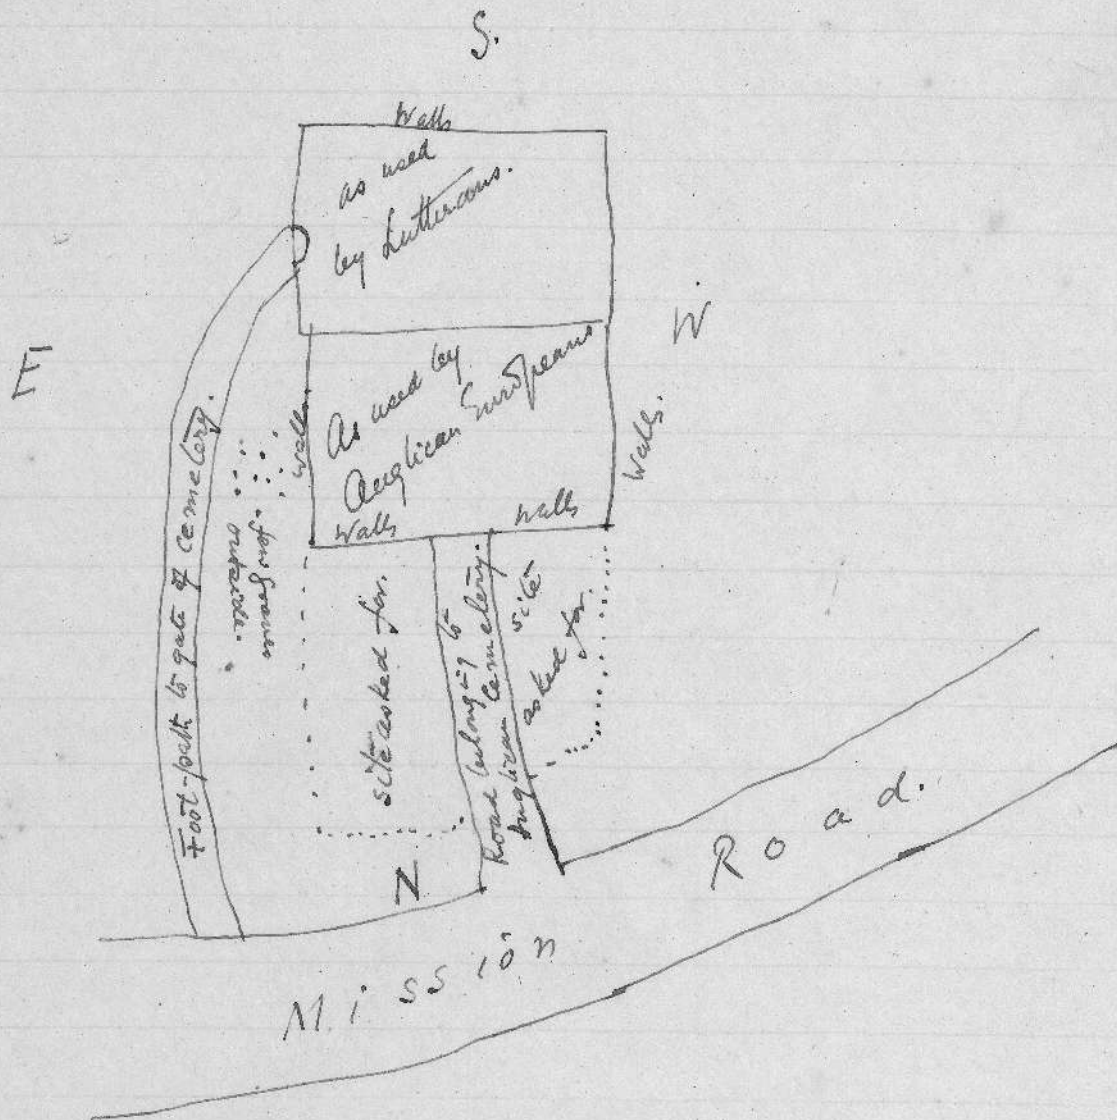 S.
Walls
as used
by Lutherans.
E
W
As used by
Anglican Europeans
Walls
Walls.
Walls
Walls
Foot-path to gate of cemetery.
few graves
outside.
site asked for.
Road belong-g to
Anglican Cemetery.
site
asked for.
N
Mission Road.